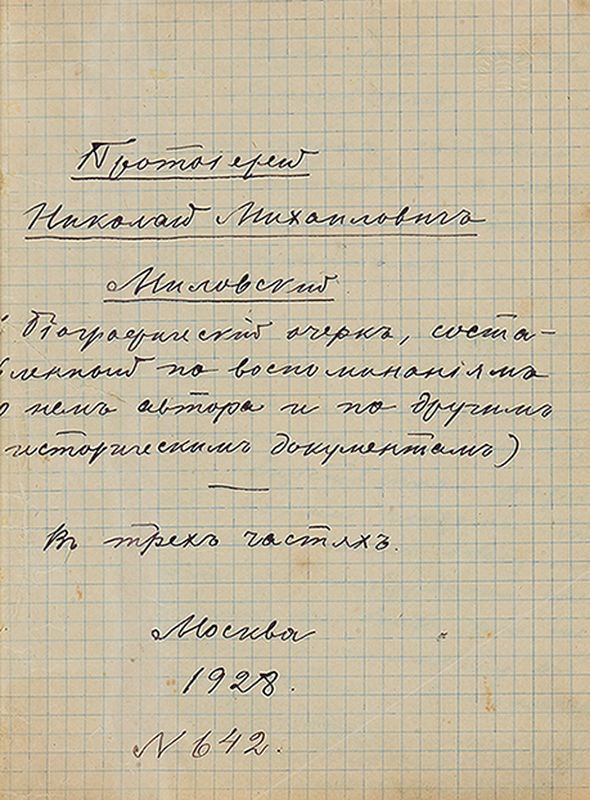 Протоіерей
Николай Михаиловичъ
Миловскій
( біографическій очеркъ, соста-
вленный по воспоминаніямъ
о немъ автора и по другимъ
историческимъ документамъ)
Въ трехъ частяхъ.
Москва
1928.
N 642.